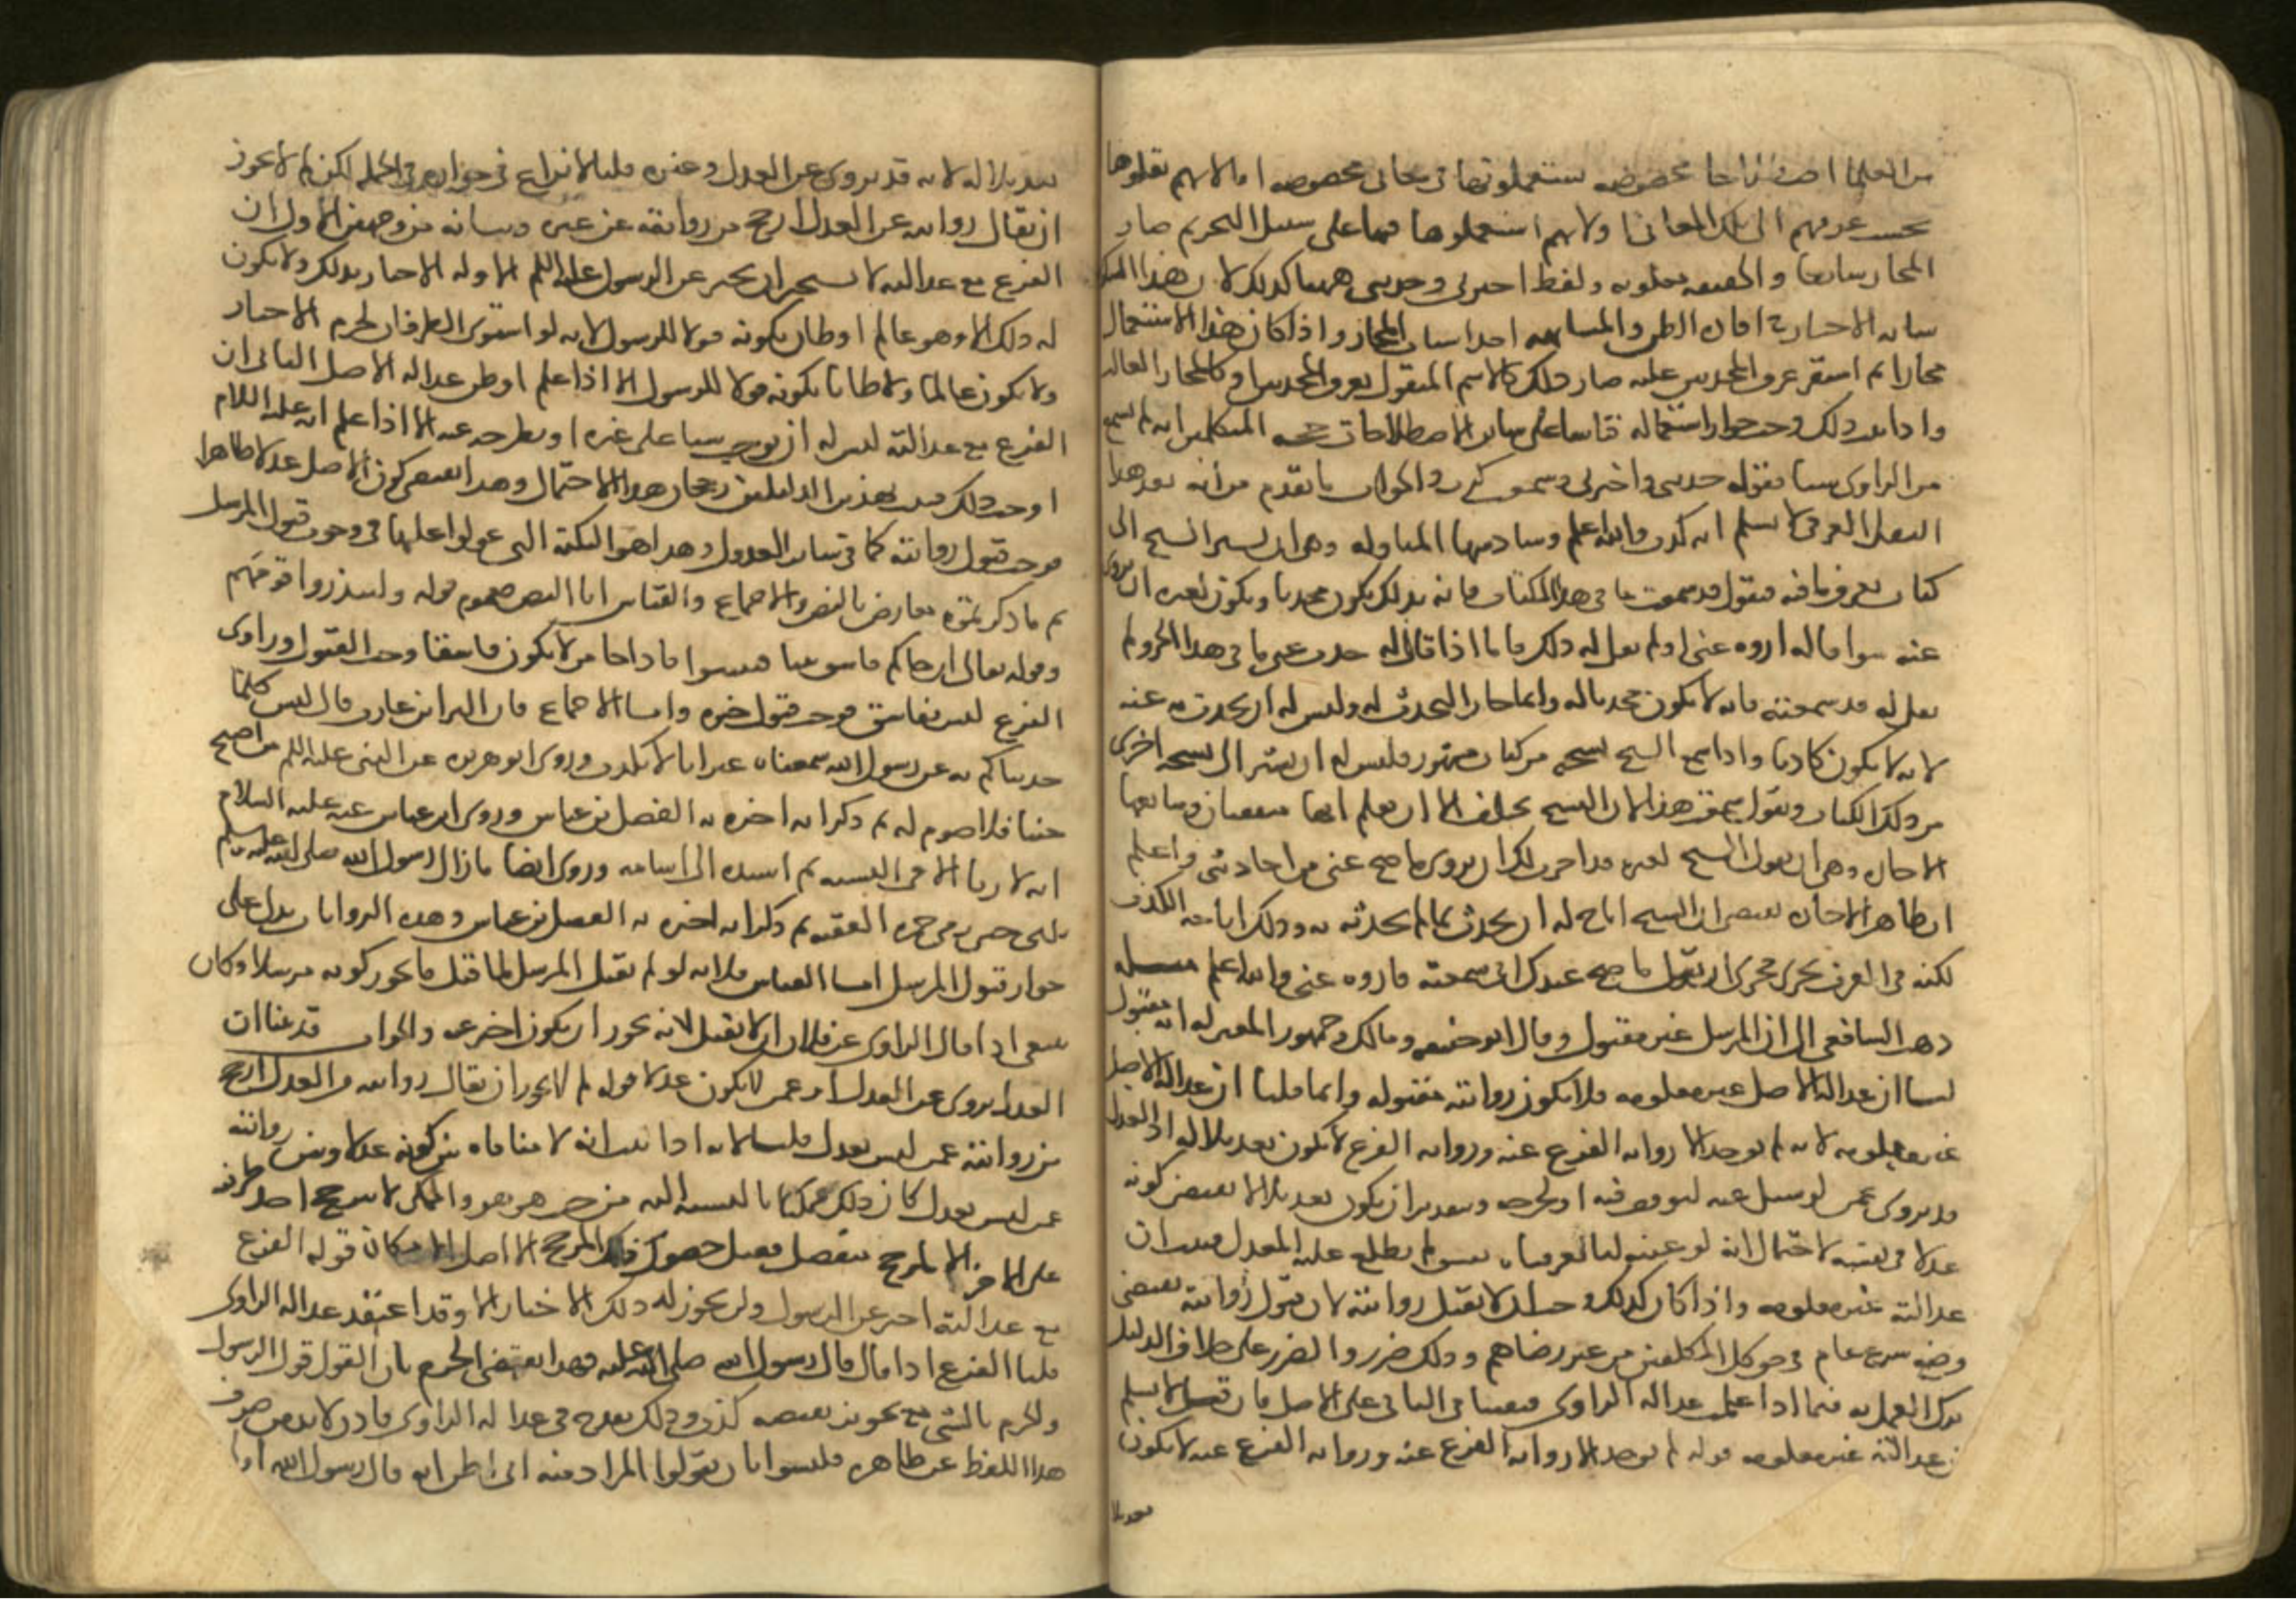 من العلما اصطلاحا مخصوصه يستعملونها في معاني مخصوصه اما لانهم نقلوها
بحسب عرفهم الى تلك المعاني او لانهم استعملوها فيها على سبيل التجوز ثم صار
المجاز شايعا والحقيقه مغلوبه ولفظ اخبرني وحدثني ههنا كذلك لان هذا السكوت
شابه الاخبار في افاده الظن والمشابهه احد اسباب المجاز واذا كان هذا الاستعمال
مجازا ثم استقر عرف المحدثين عليه صار ذلك كالاسم المنقول بعرف المحدثين او كالمجاز الغالب
واذا ثبت ذلك وجب جواز استعماله قياسا على سائر الاصطلاحات حجه المتكلمين انه لم يسمع
من الراوى شيئا فقوله حدثني واخبرني وسمعت كذب والجواب ما تقدم من انه بعد هذا
النقل العرفي لا نسلم انه كذب والله اعلم وسادسها المناوله وهي ان يشير الشيخ الى
كتاب يعرف ما فيه فيقول قد سمعت ما في هذا الكتاب فانه بذلك يكون محدثا ويكون لغيره ان يروى
عنه سوا قال له اروه عني او لم يقل له ذلك فاما اذا قال له حدث عني ما في هذا الجزو ولم
يقل له قد سمعته فانه لا يكون محدثا له وانما اجاز التحدث له وليس له ان يحدث به عنه
لانه لا يكون كاذبا واذا سمع الشيخ نسخه من كتاب مشهور فليس له ان يشير الى نسخه اخرى
من ذلك الكتاب ويقول سمعت هذا لان النسخ تختلف الا ان يعلم انهما متفقتان وسابعها
الاجازه وهي ان يقول الشيخ لغيره قد اجزت لك ان تروى ما صح عني من احاديثي واعلم
ان ظاهر الاجازه يقتضي ان الشيخ اباح له ان يحدث بما لم يحدثه به وذلك اباحه الكذب
لكنه في العرف يجرى مجرى ان يقول ما صح عندك اني سمعته فاروه عني والله اعلم مسله
ذهب الشافعي الى ان المرسل غير مقبول وقال ابو حنيفه ومالك وجمهور المعتزله انه مقبول
لنا ان عداله الاصل غير معلومه فلا يكون روايته مقبوله وانما قلنا ان عداله الاصل
غير معلومه لانه لم يوجد الا روايه الفرع عنه وروايه الفرع لا تكون تعديلا له اذ العدل
قد يروى عمن لو سئل عنه لتوقف فيه او لجرحه وبتقدير ان يكون تعديلا لا يقتضي كونه
عدلا في نفسه لاحتمال انه لو عينه لنا لعرفناه بفسق لم يطلع عليه المعدل فثبت ان
عدالته غير معلومه واذا كان كذلك وجب ان لا تقبل روايته لان قبول روايته يقتضي
وضع شرع عام في حق كل المكلفين من غير رضاهم وذلك ضرر والضرر على خلاف الدليل
ترك العمل به فيما اذا علمت عداله الراوى فيبقى في الباقي على الاصل فان قيل لا نسلم
ان عدالته غير معلومه قوله لم يوجد الا روايه الفرع عنه وروايه الفرع عنه لا يكون
تعديلا
تعديلا له لانه قد يروى عن العدل وغيره قلنا لا نزاع في جوازه في الجمله لكن لم لا يجوز
ان يقال روايته عن العدل ارجح من روايته عن غيره وبيانه من وجهين الاول ان
الفرع مع عدالته لا يستجيز ان يخبر عن الرسول عليه السلم الا وله الاخبار بذلك ولا يكون
له ذلك الا وهو عالم او ظان بكونه قولا للرسول لانه لو استوى الطرفان لحرم الاخبار
ولا يكون عالما ولا ظانا بكونه قولا للرسول الا اذا علم او ظن عداله الاصل الثاني ان
الفرع مع عدالته ليس له ان يوجب شيئا على غيره او يطرحه عنه الا اذا علم انه عليه السلام
اوجب ذلك فثبت بهذين الدليلين رجحان هذا الاحتمال وهذا يقتضي كون الاصل عدلا ظاهرا
فوجب قبول روايته كما في سائر العدول وهذا هو النكته التي عولوا عليها في وجوب قبول المرسل
ثم ما ذكرتموه معارض بالنص والاجماع والقياس اما النص فعموم قوله ولينذروا قومهم
وقوله تعالى ان جاكم فاسق بنبا فتبينوا فاذا جا من لا يكون فاسقا وجب القبول وراوى
الفرع ليس بفاسق فوجب قبول خبره واما الاجماع فان البرا بن عازب قال ليس كلما
حدثناكم به عن رسول الله سمعناه غير انا لا نكذب وروى ابو هريره عن النبي عليه السلم من اصبح
جنبا فلا صوم له ثم ذكر انه اخبره به الفضل بن عباس وروى ابن عباس عنه عليه السلام
انه لا ربا الا في النسيه ثم اسنده الى اسامه وروى ايضا ما زال رسول الله صلى الله عليه وسلم
يلبي حتى رمى جمره العقبه ثم ذكر انه اخبره به الفضل بن عباس وهذه الروايات تدل على
جواز قبول المرسل اما القياس فلانه لو لم يقبل المرسل لما قبل ما يجوز كونه مرسلا وكان
ينبغي اذا قال الراوى عن فلان ان لا تقبل لانه يجوز ان يكون اخبر عنه والجواب قد بينا ان
العدل يروى عن العدل او عمن لا يكون عدلا قوله لم لا يجوز ان يقال روايته عن العدل ارجح
من روايته عمن ليس بعدل قلنا لانه اذا ثبت انه لا منافاه بين كونه عدلا وبين روايته
عمن ليس بعدل كان ذلك ممكنا بالنسبه اليه من حيث هو هو والممكن لا يترجح احد طرفيه
على الاخر الا لمرجح منفصل فقبل حصول ذلك المرجح الاصل الامكان قوله الفرع
مع عدالته اخبر عن الرسول ولن يجوز له ذلك الاخبار الا وقد اعتقد عداله الراوى
قلنا الفرع اذا قال قال رسول الله صلى الله عليه فهذا يقتضي الجزم بان القول قول الرسول
والجزم بالشي مع تجويز نقيضه كذب وذلك يقدح في عداله الراوى فاذن لا بد من صرف
هذا اللفظ عن ظاهره فليسوا بان يقولوا المراد منه اني اظن انه قال رسول الله اولى